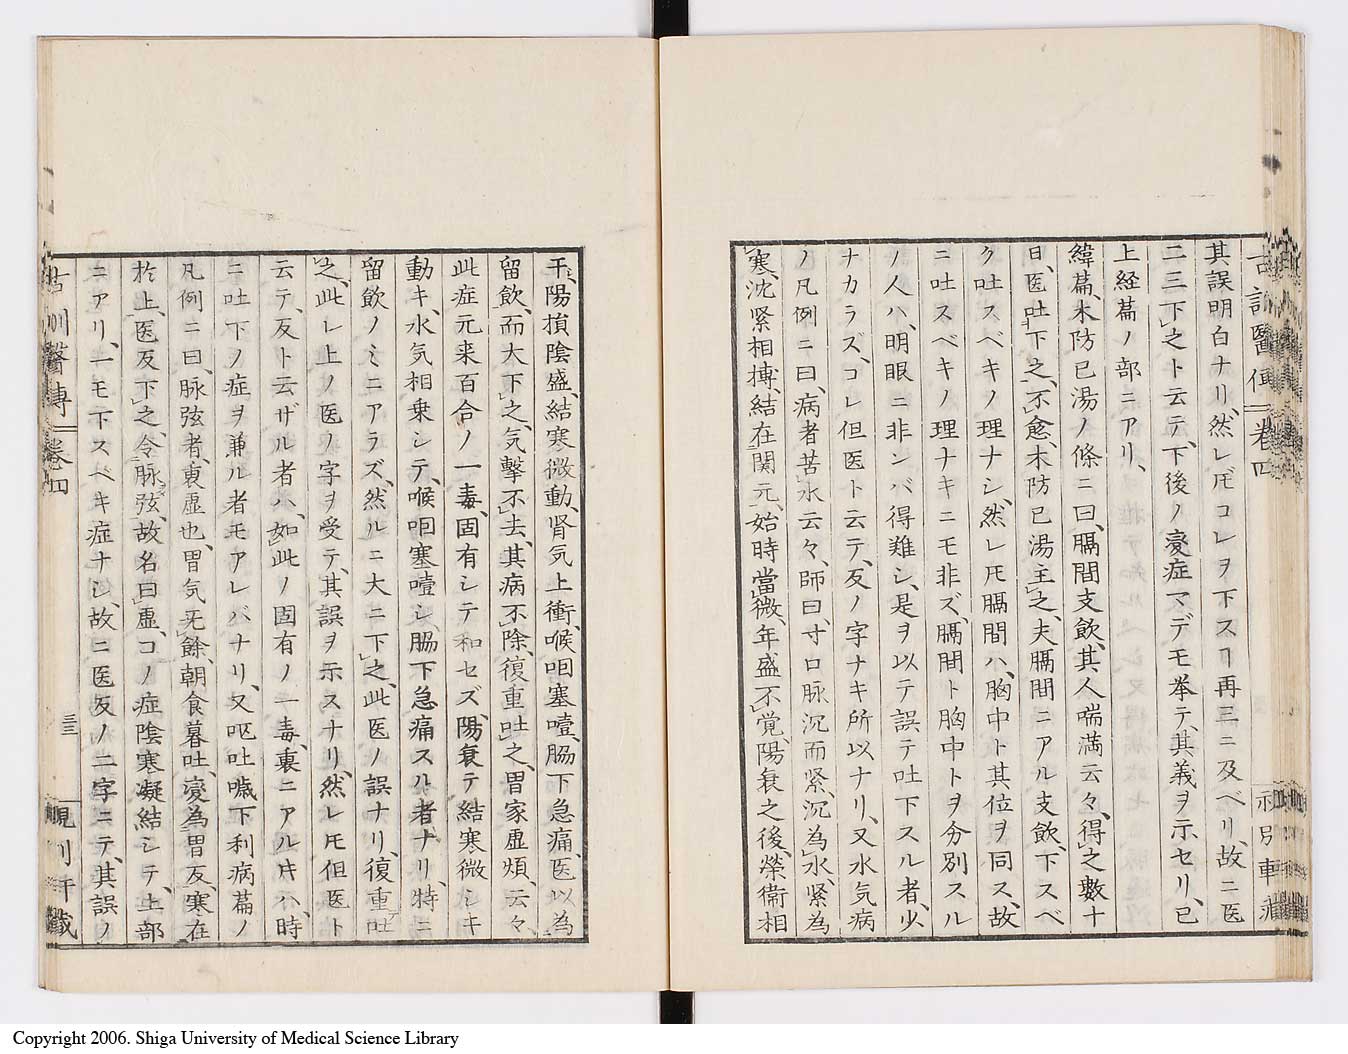 古訓醫傳 卷四
其誤明白ナリ、然レ𪜈コレヲ下スヿ再三ニ及ベリ、故ニ医
二三下之ト云テ、下後ノ変症マデモ挙テ、其義ヲ示セリ、已
上経篇ノ部ニアリ、
緯篇、木防已湯ノ條ニ曰、膈間支飲、其人喘満云々、得之數十
日、医吐下之、不愈、木防已湯主之、夫膈間ニアル支飲、下スベ
ク吐スベキノ理ナシ、然レ𪜈膈間ハ、胸中ト其位ヲ同ス、故
ニ吐スベキノ理ナキニモ非ズ、膈間ト胸中トヲ分別スル
ノ人ハ、明眼ニ非ンバ得難シ、是ヲ以テ誤テ吐下スル者、少
ナカラズ、コレ但医ト云テ、反ノ字ナキ所以ナリ、又水気病
ノ凡例ニ曰、病者苦水云々、師曰、寸口脉沉而緊、沉為水、緊為
寒、沈緊相搏、結在関元、始時當微、年盛不覚、陽衰之後、榮衞相
干、陽損陰盛、結寒微動、肾気上衝、喉咽塞噎、脇下急痛、医以為
留飲、而大下之、気撃不去、其病不除、復重吐之、胃家虚煩、云々、
此症元来百合ノ一毒、固有シテ和セズ、陽衰テ結寒微シキ
動キ、水気相乗シテ、喉咽塞噎シ脇下急痛スル者ナリ、特ニ
留飲ノミニアラズ、然ルニ大ニ下之、此医ノ誤ナリ、復重テ吐
之、此レ上ノ医ノ字ヲ受テ、其誤ヲ示スナリ、然レ𪜈但医ト
云テ、反ト云ザル者ハ、如此ノ固有ノ一毒、裏ニアル片ハ、時
ニ吐下ノ症ヲ兼ル者モアレバナリ、又呕吐噦下利病篇ノ
凡例ニ曰、脉弦者、裏虚也、胃気旡餘、朝食暮吐、変為胃反、寒在
於上、医反下之、令脉弦、故名曰虚、コノ症陰寒凝結シテ、上部
ニアリ、一モ下スベキ症ナシ、故ニ医反ノ二字ニテ、其誤ノ
古訓醫傳 卷四
三三